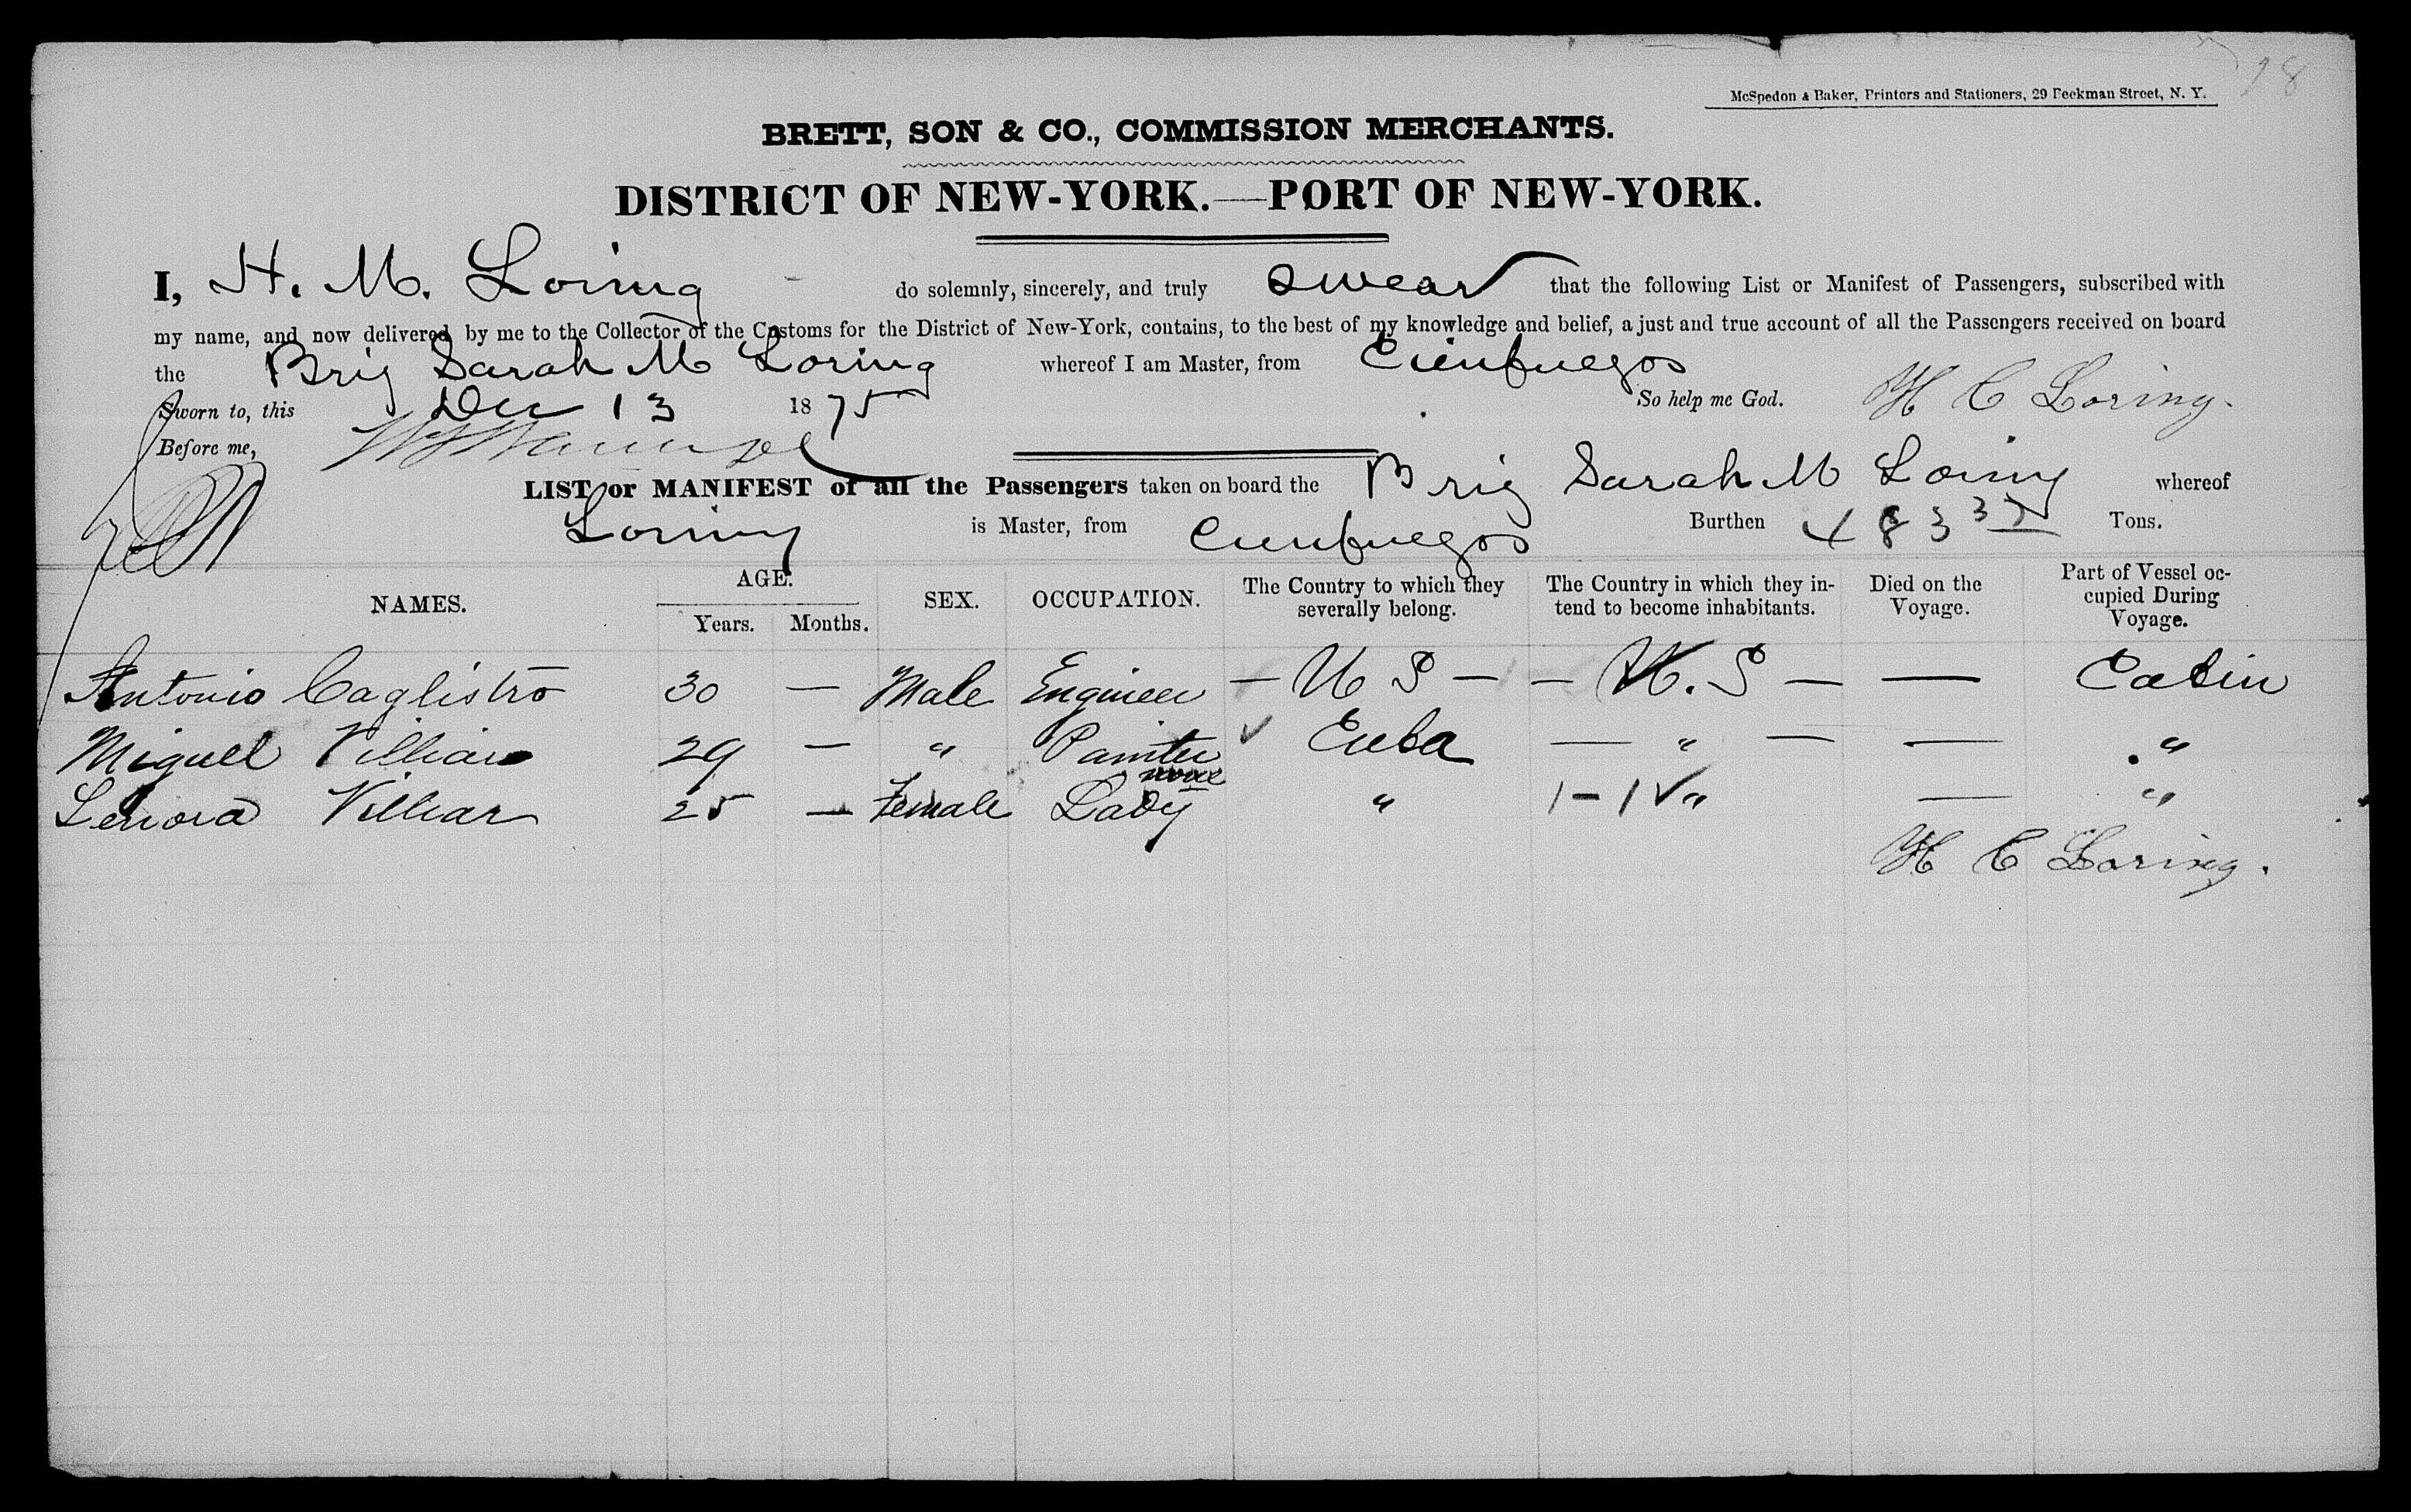 18
McSpedon & Baker, Printers and Stationers, 29 Beekman Street, N. Y.
BRETT, SON & CO., COMMISSION MERCHANTS.
DISTRICT OF NEW-YORK.—PORT OF NEW-YORK.
I, H. M. Loring do solemnly, sincerely, and truly swear that the following List or Manifest of Passengers, subscribed with
my name, and now delivered by me to the Collector of the Customs for the District of New-York, contains, to the best of my knowledge and belief, a just and true account of all the Passengers received on board
the Brig Sarah M Loring whereof I am Master, from Cienfuegos
Sworn to, this Dec 13 1875 So help me God. H C Loring.
Before me,
LIST or MANIFEST of all the Passengers taken on board the Brig Sarah M Loring whereof
Loring is Master, from Cienfuegos Burthen 483 Tons.
NAMES. AGE. Years. Months. SEX. OCCUPATION. The Country to which they severally belong. The Country in which they intend to become inhabitants. Died on the Voyage. Part of Vessel occupied During Voyage.
Antonio Caglistro 30 — Male Engineer — U S — — U. S — — Cabin
Miguel Villiar 29 — " Painter Cuba — " — — "
none
Lenora Villiar 25 — Female Lady " 1 - 1 " — "
H C Loring.